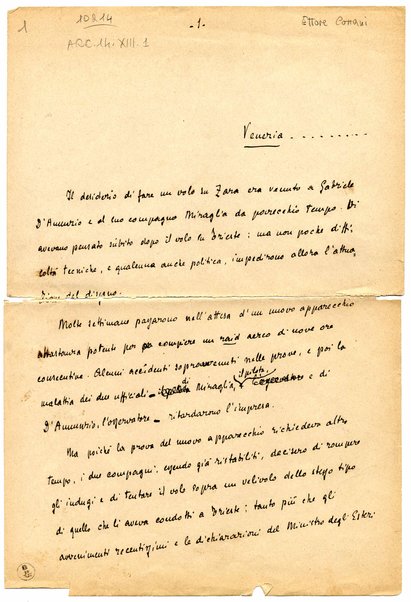 1
10214
ARC.14.XIII.1
-1-
Ettore Cozzani
Venezia ..........
Il desiderio di fare un volo su Zara era venuto a Gabriele
D'Annunzio e al suo compagno Miraglia da parecchio tempo. Vi
avevano pensato subito dopo il volo su Trieste: ma non poche diffi.
coltà tecniche, e qualcuna anche politica, impedirono allora l'attua,
zione del disegno.
Molte settimane passarono nell'attesa d'un nuovo apparecchio
abbastanza potente per compiere un raid aereo di nove ore
consecutive. Alcuni accidenti sopravvenuti nelle prove, e poi la
malattia dei due ufficiali - di Miraglia, il pilota, e di
D'Annunzio, l'osservatore - ritardarono l'impresa.
Ma poiché la prova del nuovo apparecchio richiedeva altro
tempo, i due compagni, essendo già ristabiliti, decisero di rompere
gli indugi e di tentare il volo sopra un velivolo dello stesso tipo
di quello che li aveva condotti a Trieste; tanto più che gli
avvenimenti recentissimi e le dichiarazioni del Ministro degli Esteri